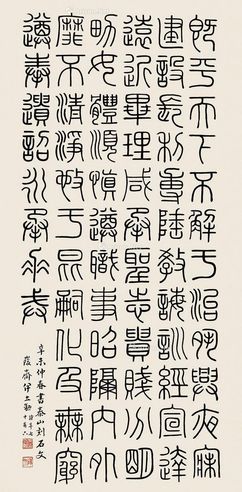 既平天下不解于治夙興夜寐
建設長利專隆教誨訓經宣達
遠近畢理咸承聖志貴賤分明
男女體順慎遵職事昭隔內外
靡不清淨施于昆嗣化及無窮
遵奉遺詔永承重戒
辛未仲春書泰山刻石文
峻齋伊立勳時年七十有六